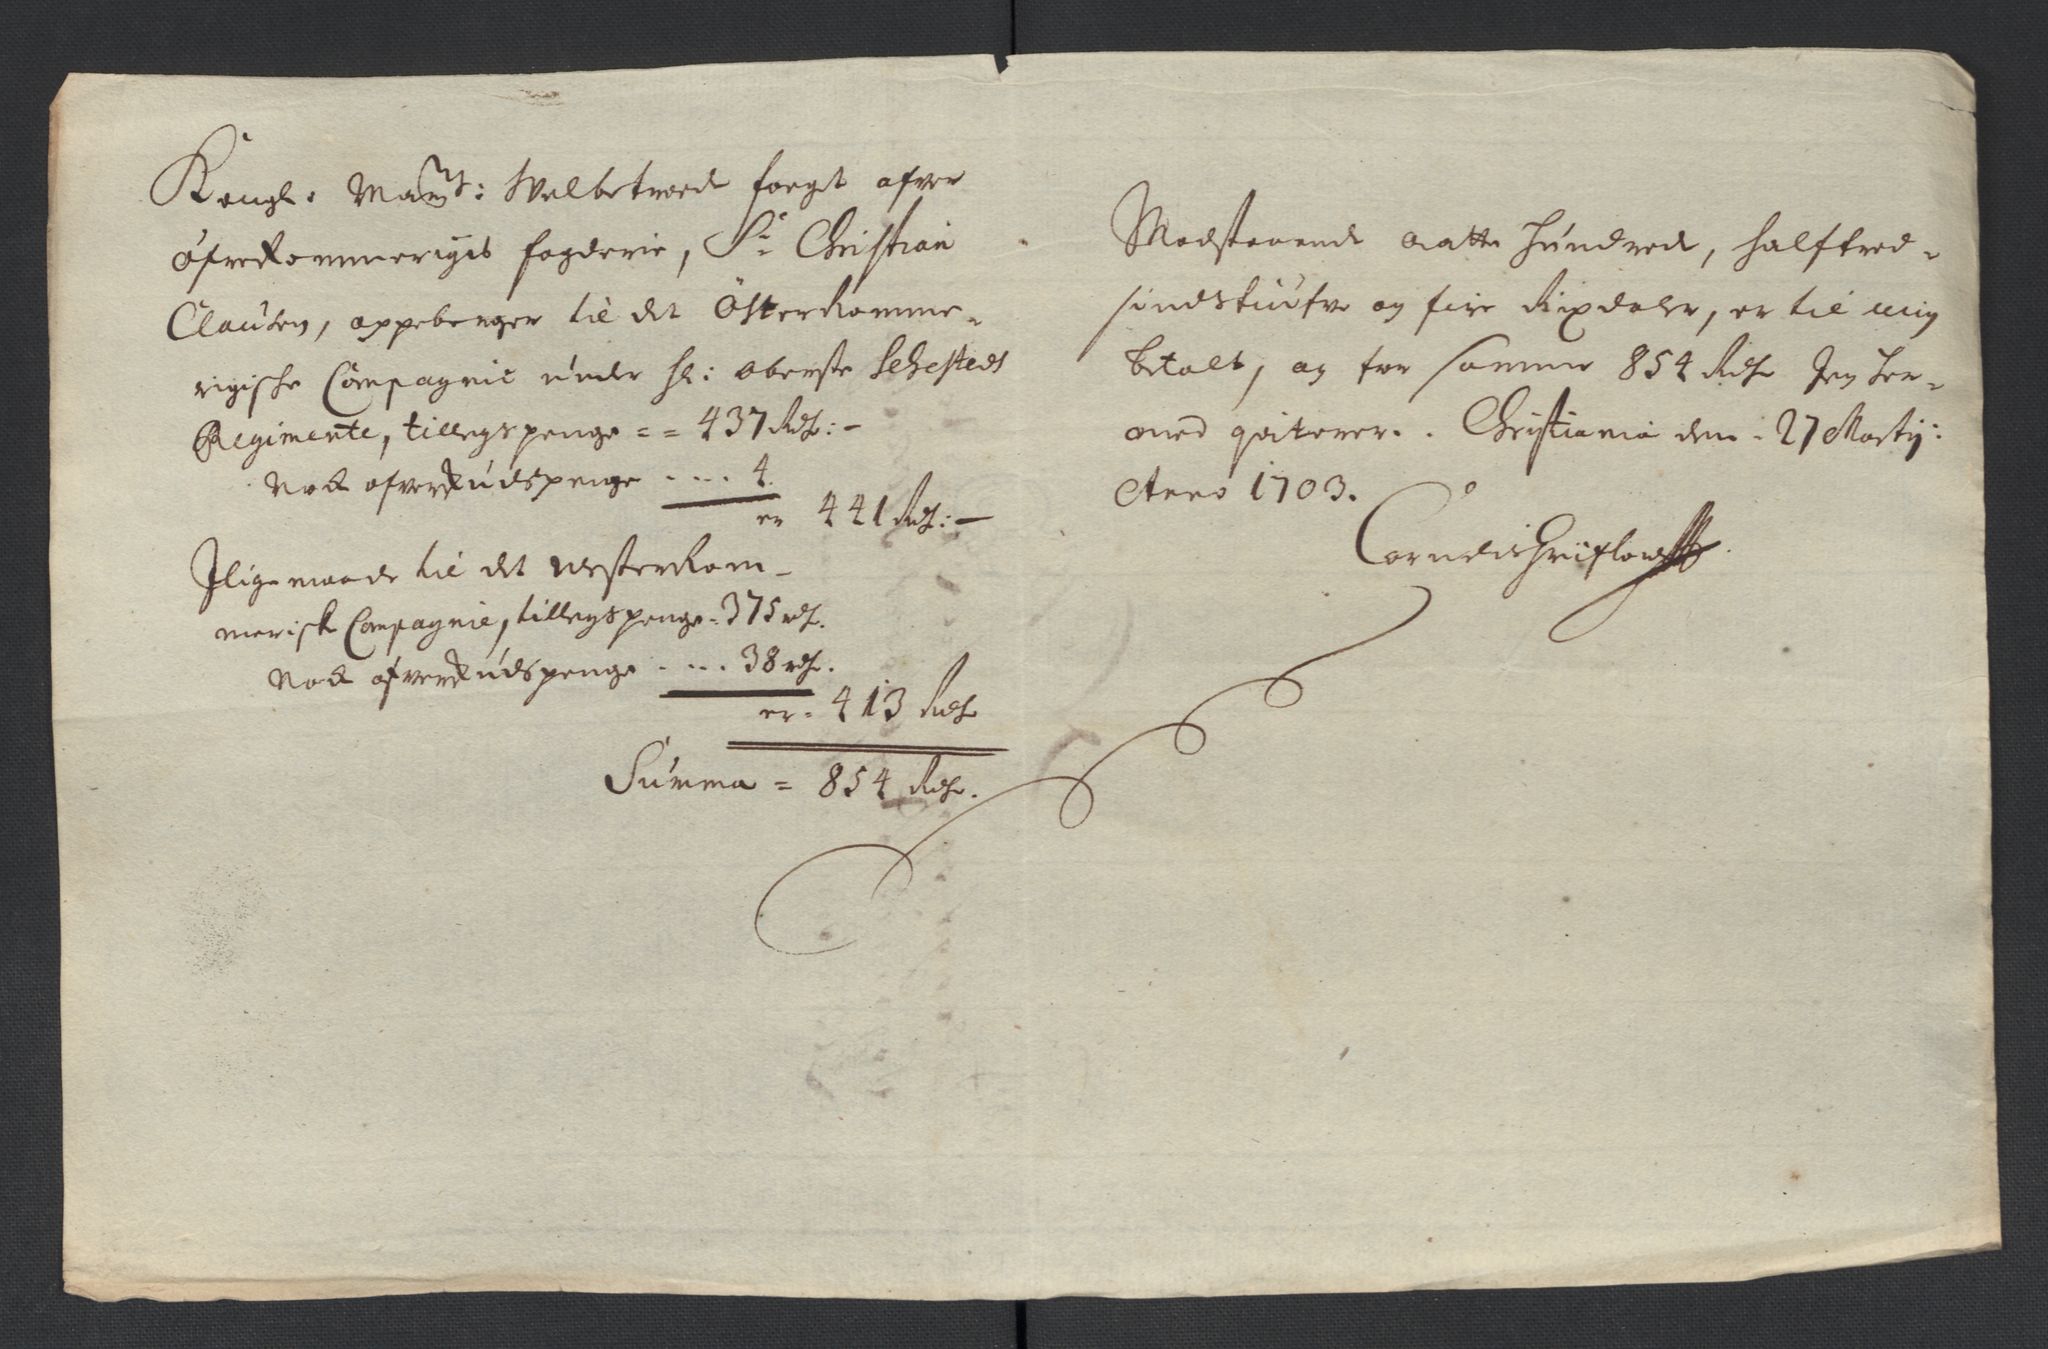 Kongl. Maÿts: Welbetroede foegt ofver
öfreRommerigis fogderie, Sr Christian
Clausen, oppebenger til det ÖsterRomme-
rigische Compagnie under Hr: Oberste Sehesteds
Regimente, tillegspenge = = 437 Rdr: –
Nock ofverskudspenge . - . . 4.
er 441 Rdr: –
Jligemaade til det VesterRom-
merisk Compagnie, tillegspenge - 375 rdr.
Nock ofverskudspenge . - . . 38 rdr.
er - 413 Rdr
Summa = 854 Rdr.
Modstaaende Aatte Hundrede, Halftred-
sindstiufve og fire Rixdaler, er til mig
betalt, og for samme 854 Rdr Jeg Her-
med qviterer. . Christiania den - 27 Martij:
Anno 1703.
Cornelis